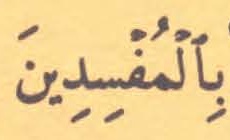 بِٱلْمُفْسِدِينَ